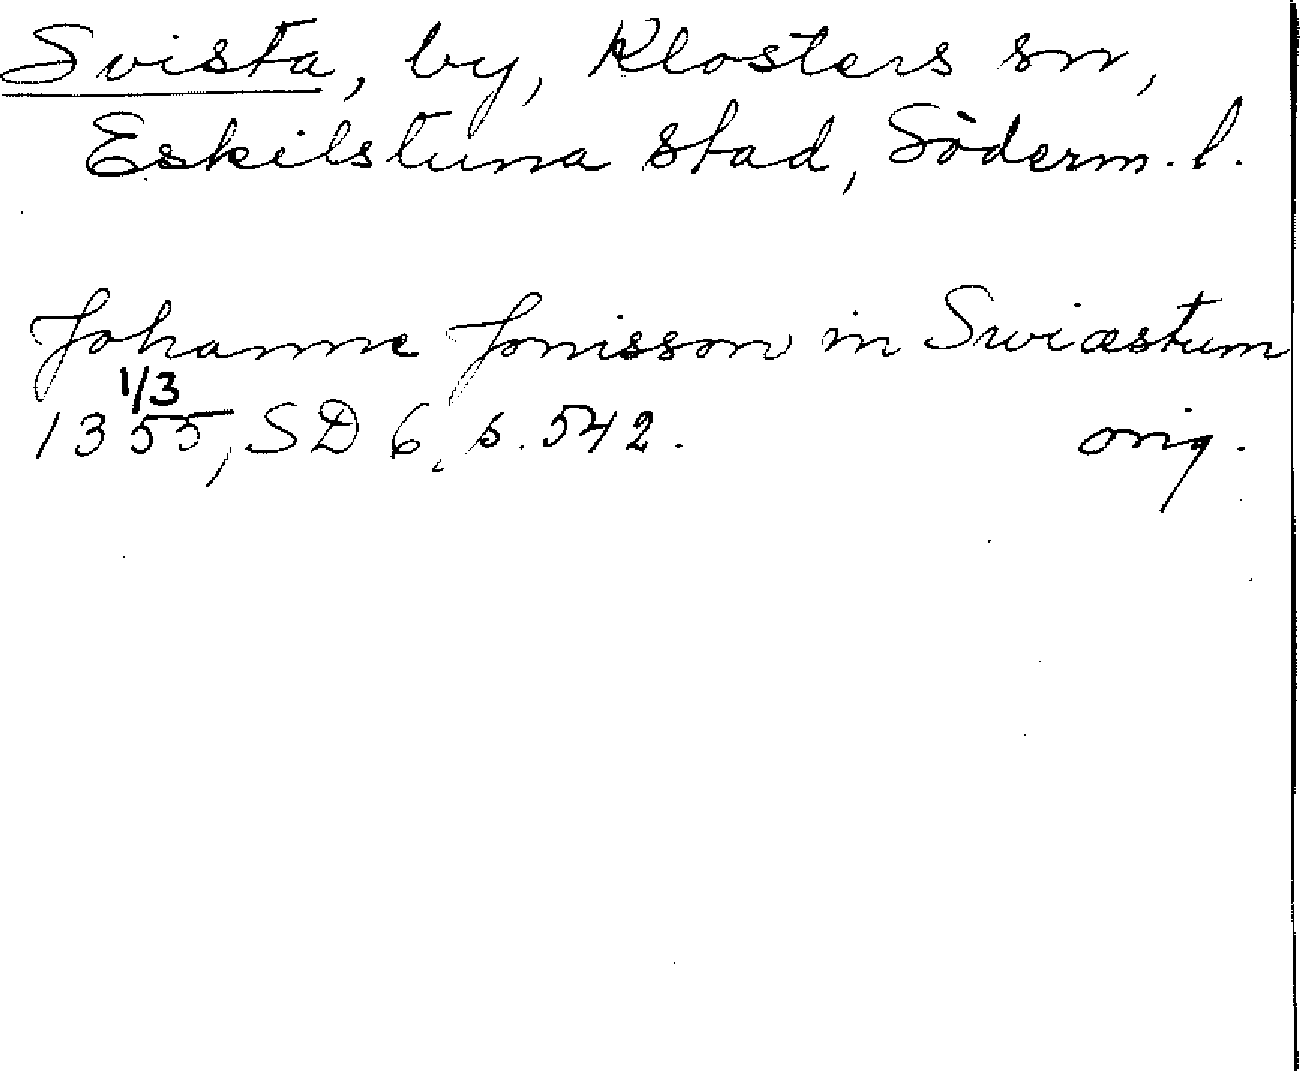 Svista, by, Klosters sn,
Eskilstuna stad, Söderm. l.
Johanne Jonisson in Swiæstum
1/3
1355, SD 6, s. 542. orig.